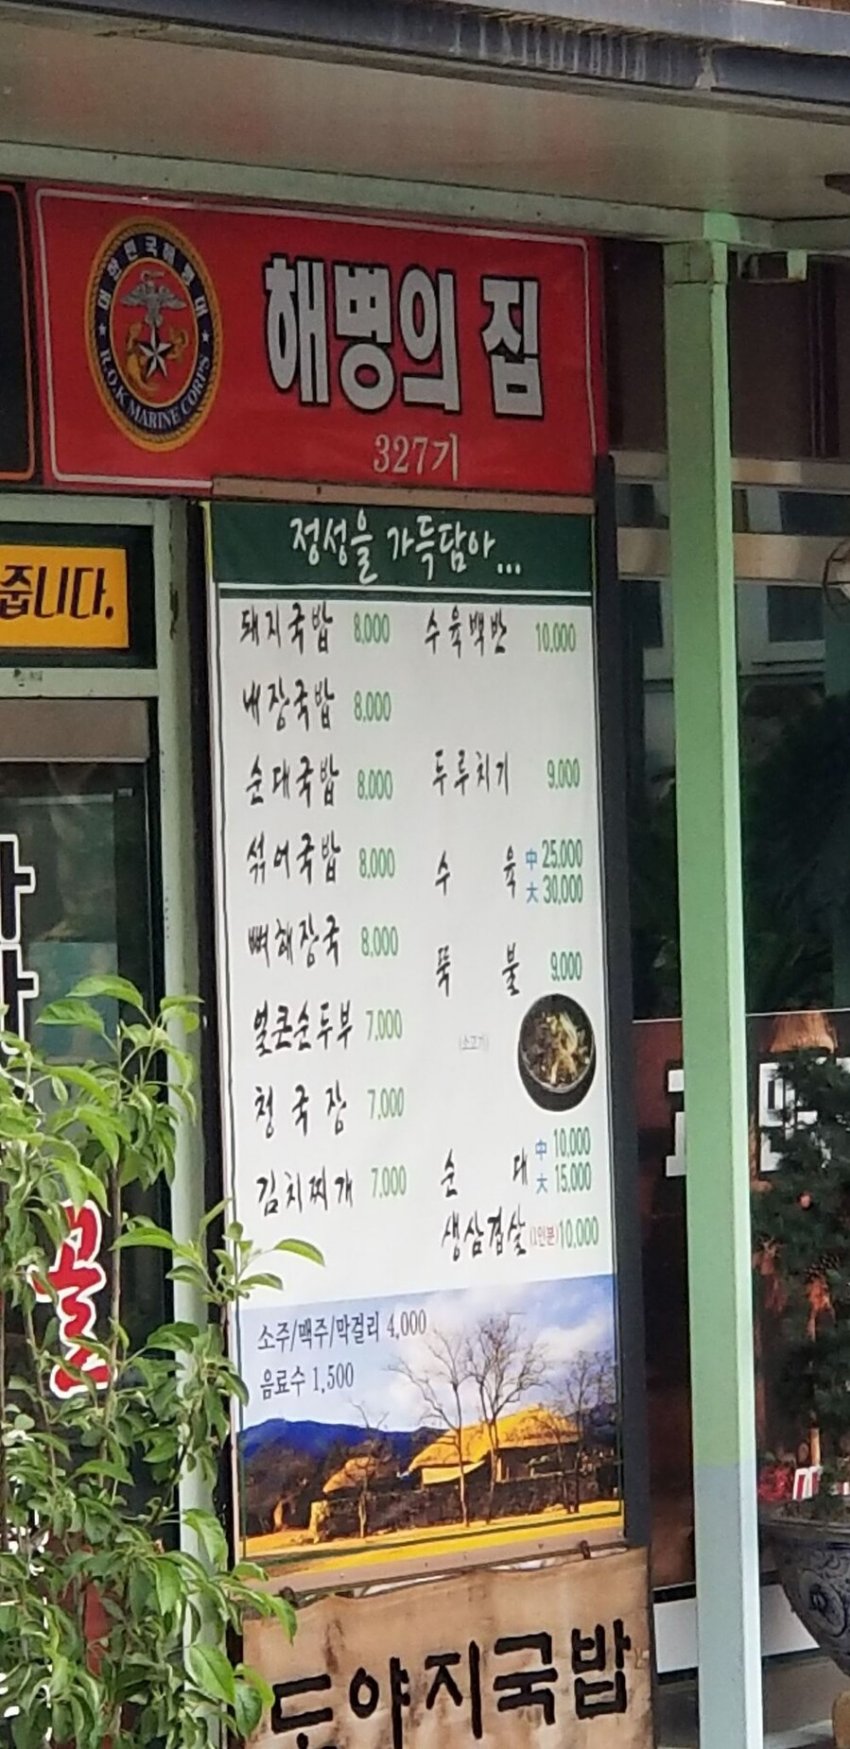 대한민국해병대
R.O.K MARINE CORPS
해병의 집
327기
줍니다.
정성을 가득담아...
돼지국밥 8,000
내장국밥 8,000
순대국밥 8,000
섞어국밥 8,000
뼈해장국 8,000
얼큰순두부 7,000
청국장 7,000
김치찌개 7,000
수육백반 10,000
두루치기 9,000
수육 中 25,000
大 30,000
뚝불 9,000
(소고기)
순대 中 10,000
大 15,000
생삼겹살 (1인분) 10,000
소주/맥주/막걸리 4,000
음료수 1,500
골
도야지국밥